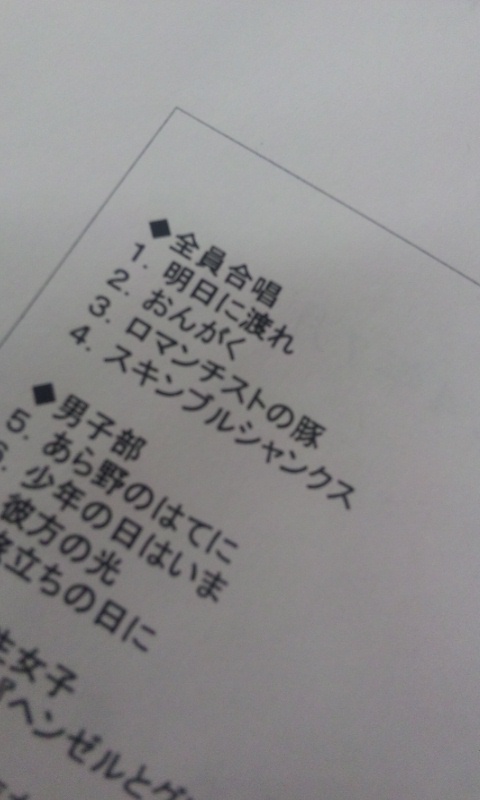 ◆全員合唱
1. 明日に渡れ
2. おんがく
3. ロマンチストの豚
4. スキンブルシャンクス
◆男子部
5. あら野のはてに
6. 少年の日はいま
彼方の光
旅立ちの日に
生女子
『ヘンゼルとグ